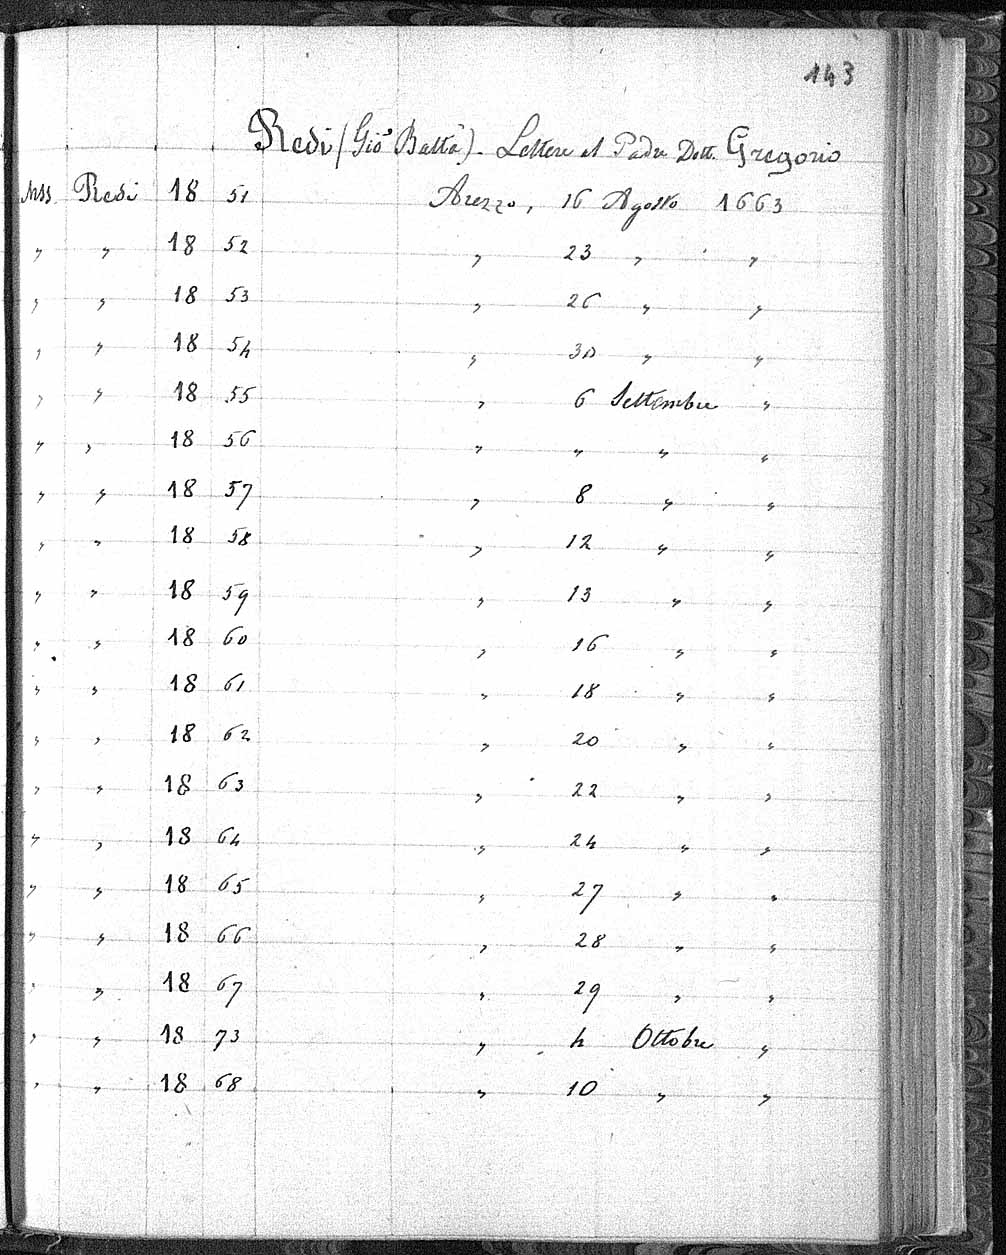 143
Redi (Gio Batta) - Lettere al Padre Dott. Gregorio
Mss. Redi 18 51 Arezzo, 16 Agosto 1663
" " 18 52 " 23 " "
" " 18 53 " 26 " "
" " 18 54 " 30 " "
" " 18 55 " 6 Settembre "
" " 18 56 " " " "
" " 18 57 " 8 " "
" " 18 58 " 12 " "
" " 18 59 " 13 " "
" " 18 60 " 16 " "
" " 18 61 " 18 " "
" " 18 62 " 20 " "
" " 18 63 " 22 " "
" " 18 64 " 24 " "
" " 18 65 " 27 " "
" " 18 66 " 28 " "
" " 18 67 " 29 " "
" " 18 73 " 4 Ottobre "
" " 18 68 " 10 " "